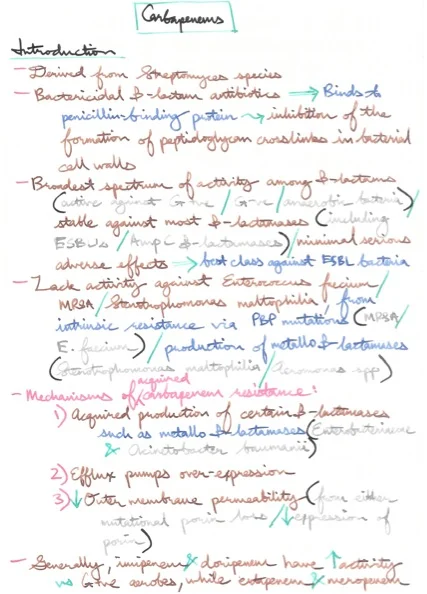 Carbapenems
Introduction
- Derived from Streptomyces species
- Bactericidal β-lactam antibiotics → Binds to
penicillin-binding protein → inhibition of the
formation of peptidoglycan crosslinks in bacterial
cell walls
- Broadest spectrum of activity among β-lactams
(active against G+ve / G-ve / anaerobic bacteria) /
stable against most β-lactamases (including
ESBLs / AmpC β-lactamases) / minimal serious
adverse effects → best class against ESBL bacteria
- Lack activity against Enterococcus faecium /
MRSA / Stenotrophomonas maltophilia, from
intrinsic resistance via PBP mutations (MRSA /
E. faecium) / production of metallo β-lactamases
(Stenotrophomonas maltophilia / Aeromonas spp)
- Mechanisms of acquired carbapenem resistance:
1) Acquired production of certain β-lactamases
such as metallo β-lactamases (Enterobacteriaceae
& Acinetobacter baumanii)
2) Efflux pumps over-expression
3) ↓ Outer membrane permeability (from either
mutational porin loss / ↓ expression of
porin)
- Generally, imipenem & doripenem have ↑ activity
vs G+ve aerobes, while ertapenem & meropenem